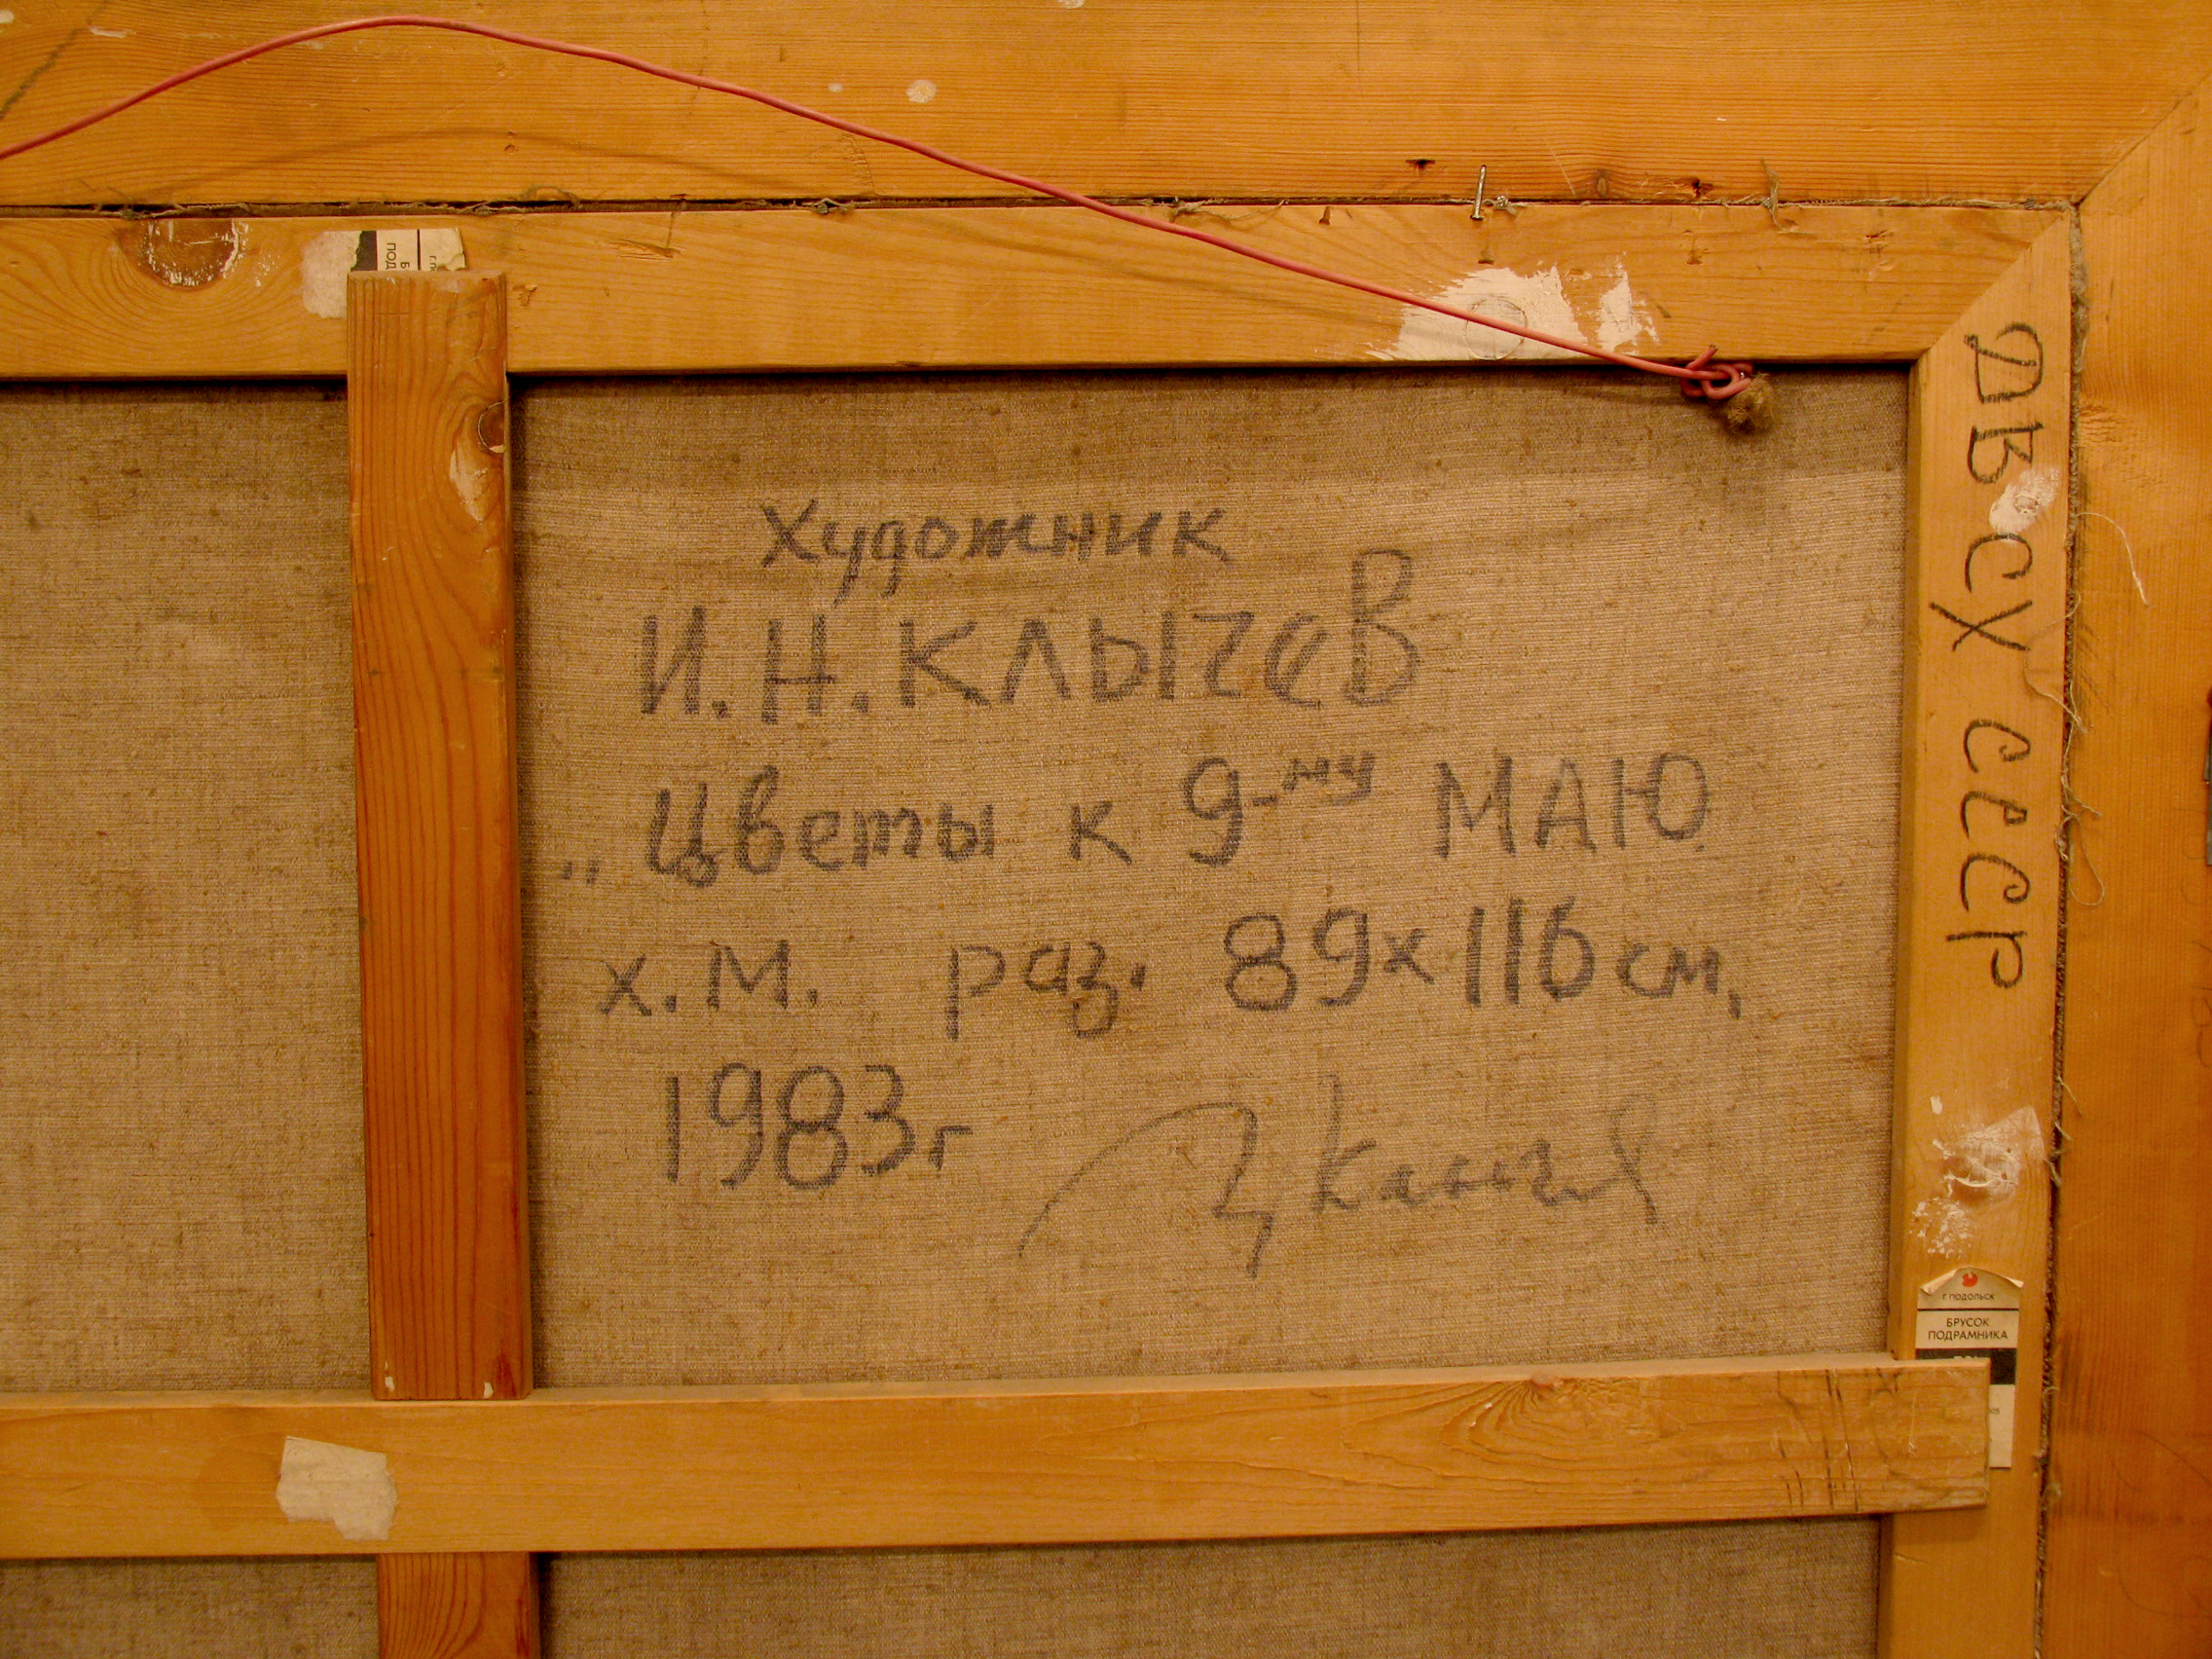 художник
И.Н.КЛЫЧЕВ
„Цветы к 9-му МАЮ
х.м. раз. 89х116см,
1983г
ДВ СХ СССР
Г. ПОДОЛЬСК
БРУСОК
ПОДРАМНИКА